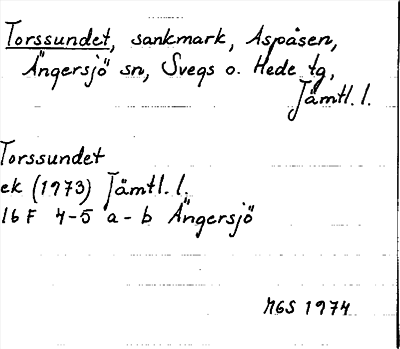 Torssundet, sankmark, Aspåsen,
Ängersjö sn, Svegs o. Hede tg,
Jämtl. l.
Torssundet
ek (1973) Jämtl. l.
16 F 4-5 a-b Ängersjö
MGS 1974